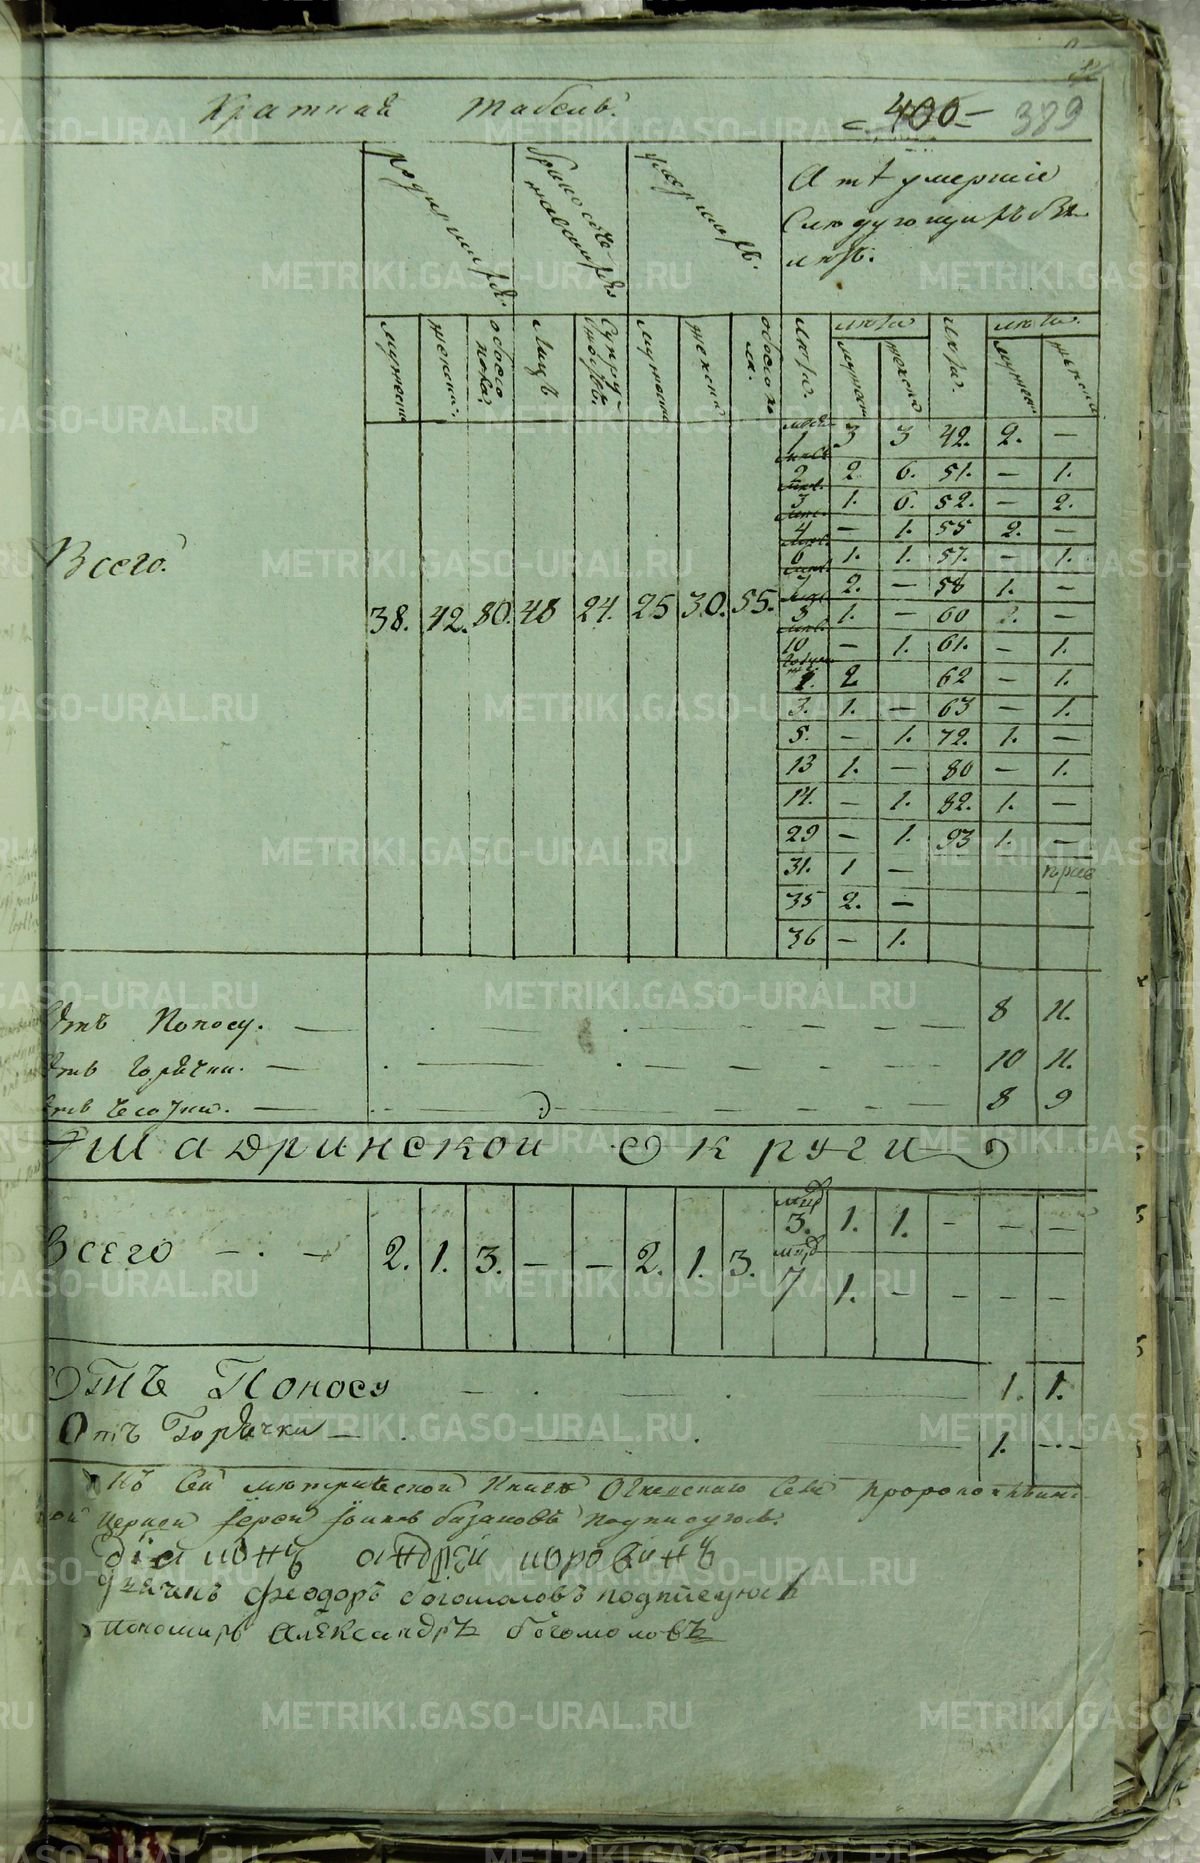 Краткая табель.
400 389
родившихся
бракосочетавшихся
умершихъ
А тѣ умершие
Следующихъ бы
летъ.
мужеска
женска.
обоего пола.
Лицъ
Супружествъ.
мужеска
женска
обоего по
ла.
лета.
мужеск
женска
лета.
мужеск
женска
1 3 3 42. 2. —
2 2 6. 51. — 1.
3 1. 6. 52. — 2.
4 — 1. 55 2. —
6 1. 1. 57. — 1.
7 2. — 58 1. —
1. — 60 2. —
10 — 1. 61. — 1.
1. 2 62 — 1.
3. 1. — 63 — 1.
5. — 1. 72. 1. —
13 1. — 80 — 1.
14. — 1. 82. 1. —
29 — 1. 93 1. —
31. 1 —
35 2. —
36 — 1.
Всего.
38. 42. 80. 48 24. 25 30. 55.
Отъ Поносу. 8 11.
Отъ Горячки. 10 11.
8 9
Шадринской Округи
Всего 2. 1. 3. — — 2. 1. 3. 3. 1. 1. — — —
7 1. — — — —
Отъ Поносу 1. 1.
Отъ Горячки 1. —
Къ Сей метрической Книге Села Пророко
Церкви Іерей Іоаннъ базановъ подписуюсь.
Діаконъ андрей
феодоръ богомоловъ подписуюсь
Пономарь Александръ богомоловъ
METRIKI.GASO-URAL.RU